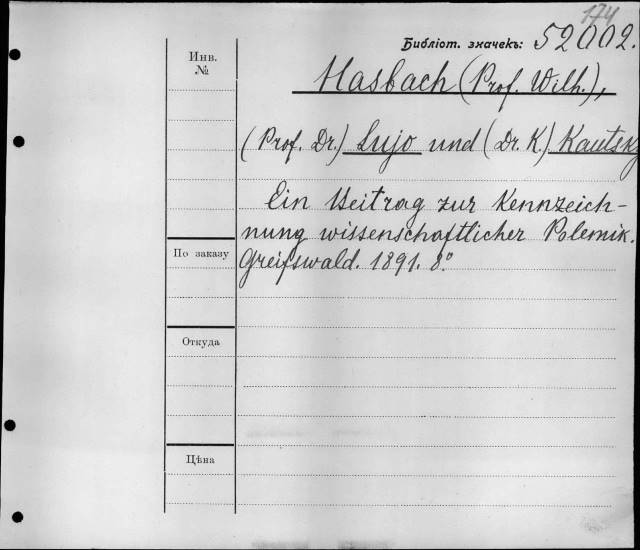 174
Библіот. значекъ: 52002.
Инв.
№
Hasbach (Prof. Wilh.),
(Prof. Dr.) Lujo und (Dr. K.) Kautsky
Ein Beitrag zur Kennzeich-
nung wissenschaftlicher Polemik.
По заказу
Greifswald. 1891. 8.°
Откуда
Цѣна